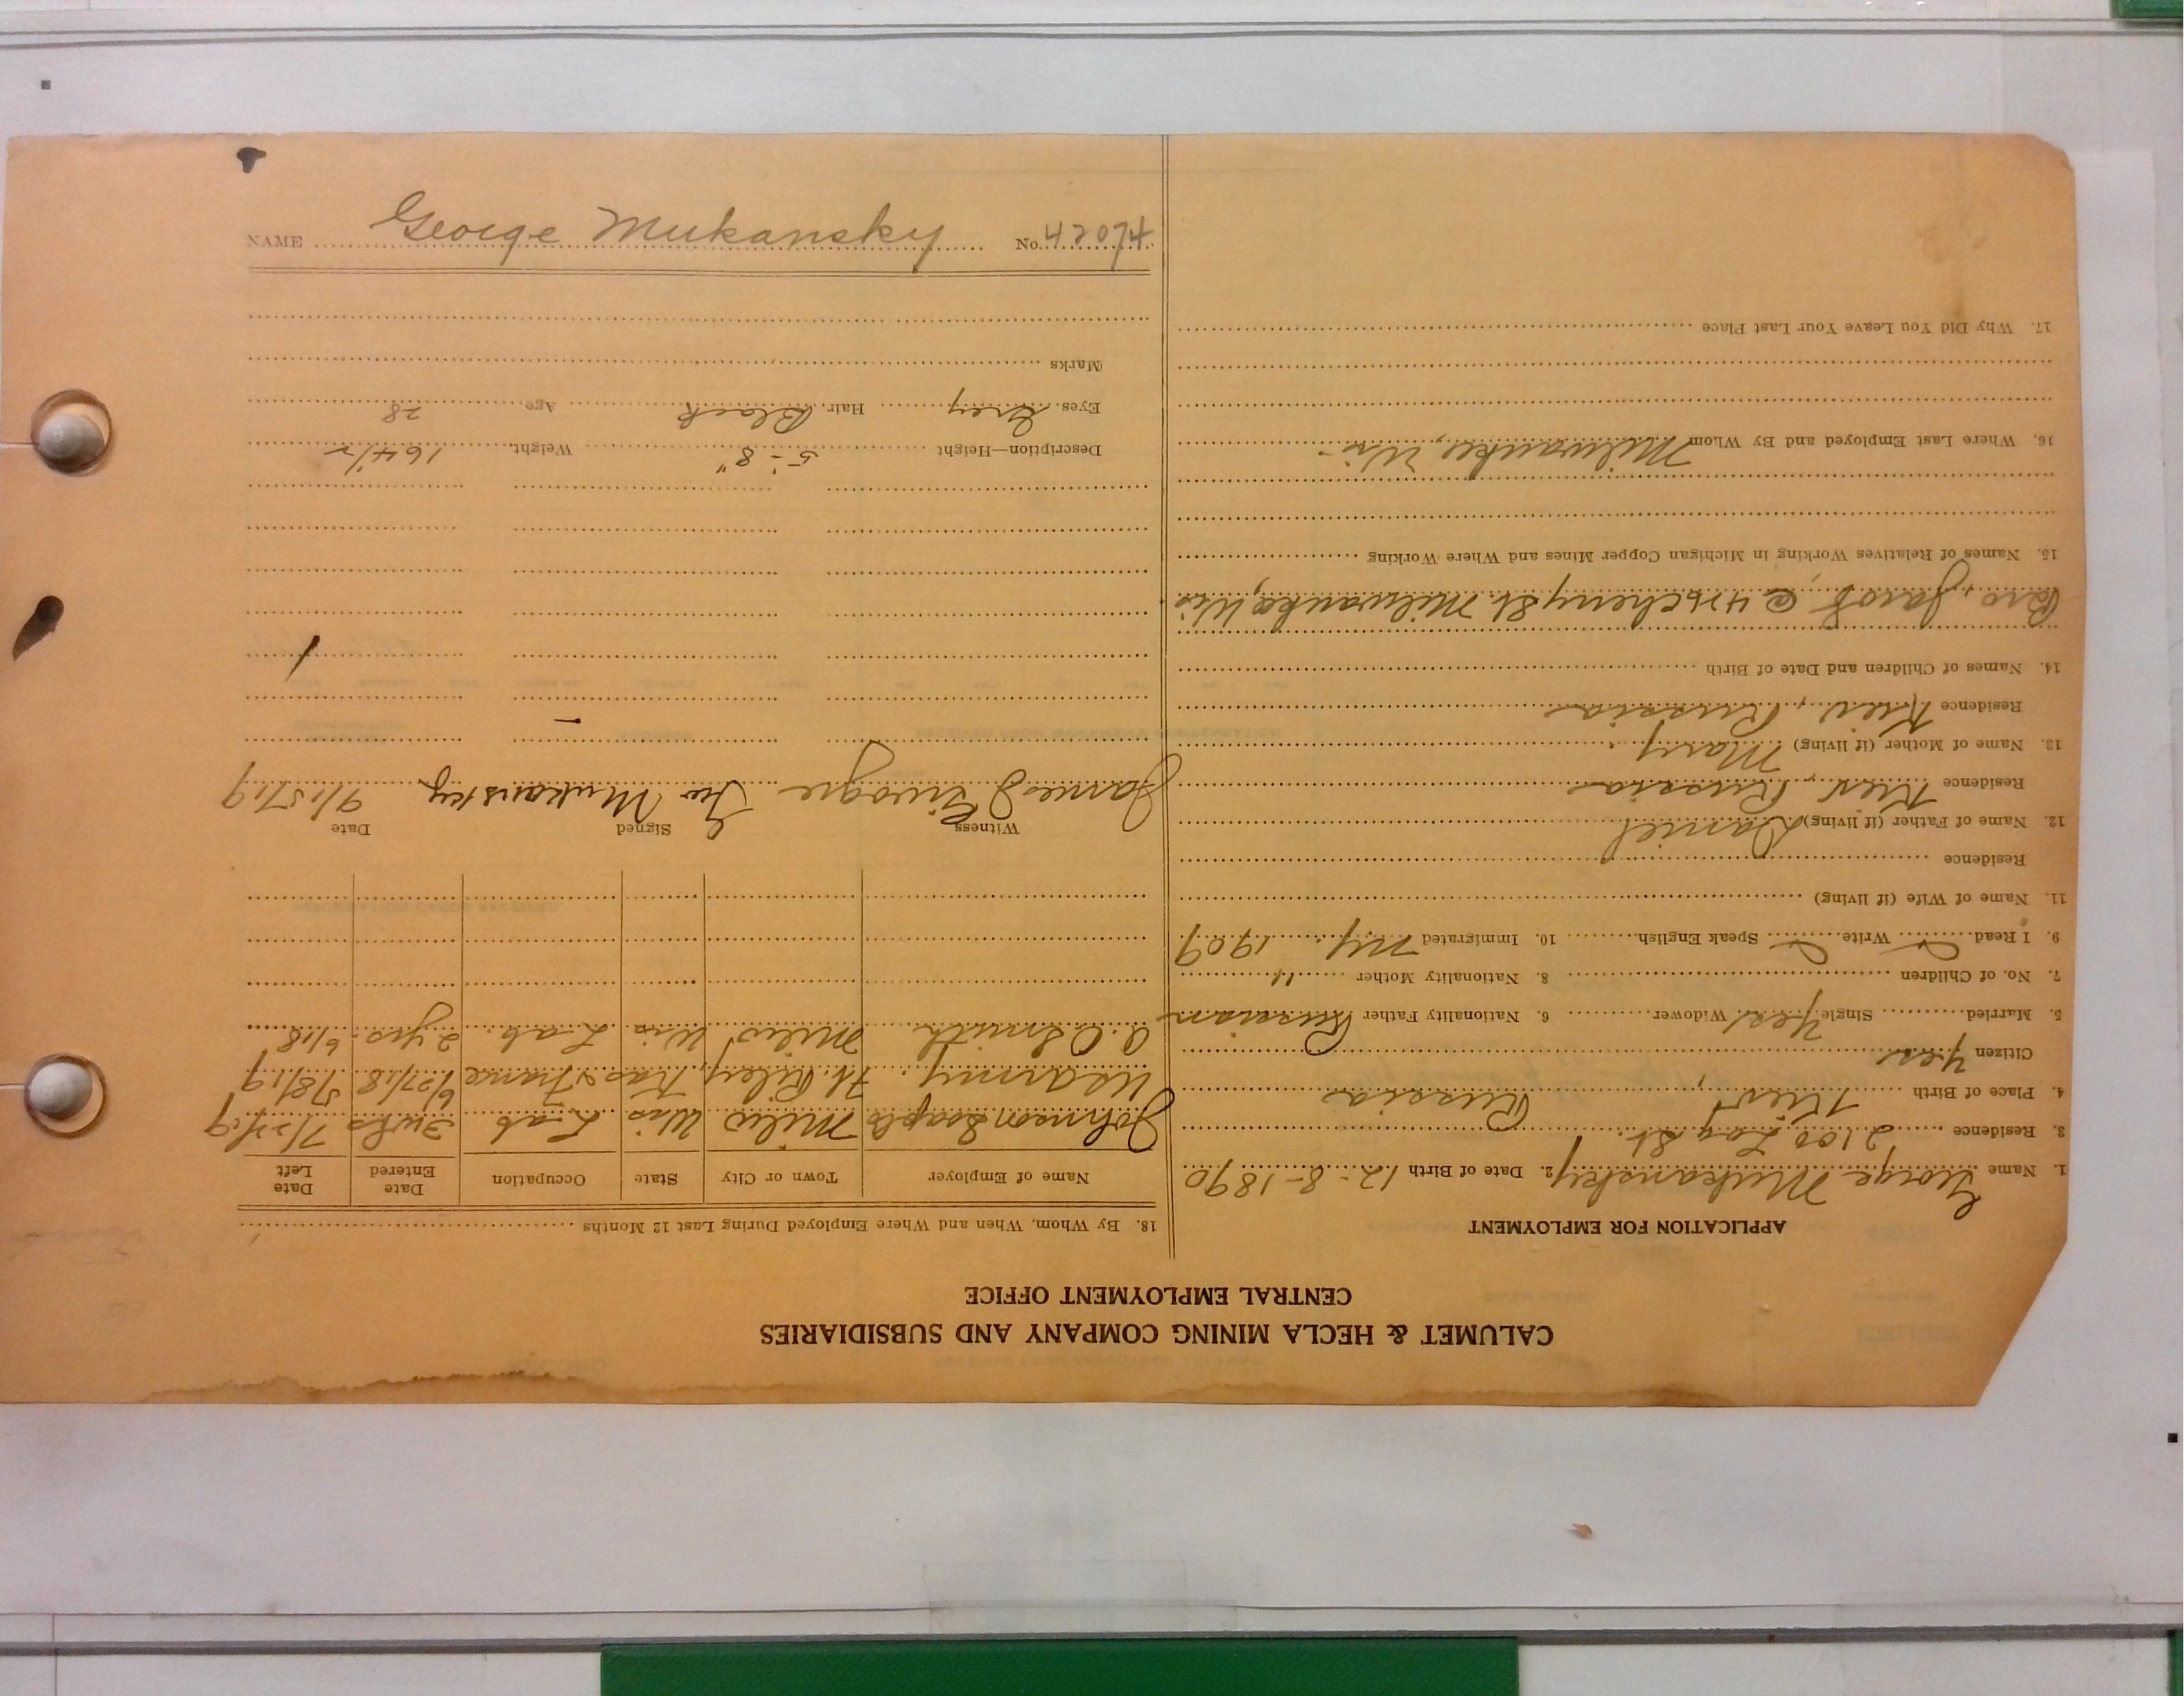 CALUMET & HECLA MINING COMPANY AND SUBSIDIARIES
CENTRAL EMPLOYMENT OFFICE
APPLICATION FOR EMPLOYMENT
1. Name George Mukansky 2. Date of Birth 12-8-1890
3. Residence 2100 Log St.
4. Place of Birth Kiev, Russia
Citizen Yes
5. Married Single Yes Widower 6. Nationality Father Russian
7. No. of Children 8. Nationality Mother "
9. I Read Write Speak English 10. Immigrated NY. 1909
11. Name of Wife (if living)
Residence
12. Name of Father (if living) Daniel
Residence Kiev, Russia
13. Name of Mother (if living) Mary
Residence Kiev, Russia
14. Names of Children and Date of Birth
Bro, Jacob @ 426 Cherry St. Milwaukee, Wis
15. Names of Relatives Working in Michigan Copper Mines and Where Working
16. Where Last Employed and By Whom Milwaukee, Wis-
17. Why Did You Leave Your Last Place
18. By Whom, When and Where Employed During Last 12 Months
Name of Employer Town or City State Occupation Date Entered Date Left
Johnson Soap Co Milw Wis Lab 3 wks 7/27/19
US army. Ft. Riley, Kas & France 6/27/18 5/8/19
A. O. Smith Milw Wis Lab 2 yrs. 6/18
Witness Signed Date
James Geo Mukansky 9/15/19
Description—Height 5'-8" Weight 164½
Eyes Grey Hair Black Age 28
Marks
NAME George Mukansky No. 42074